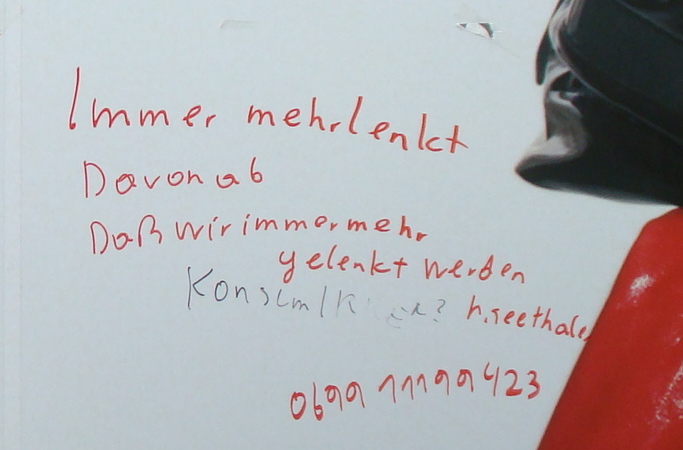 Immer mehr lenkt
Davon ab
Daß wir immer mehr
gelenkt werden
h.seethaler
0699 11199423